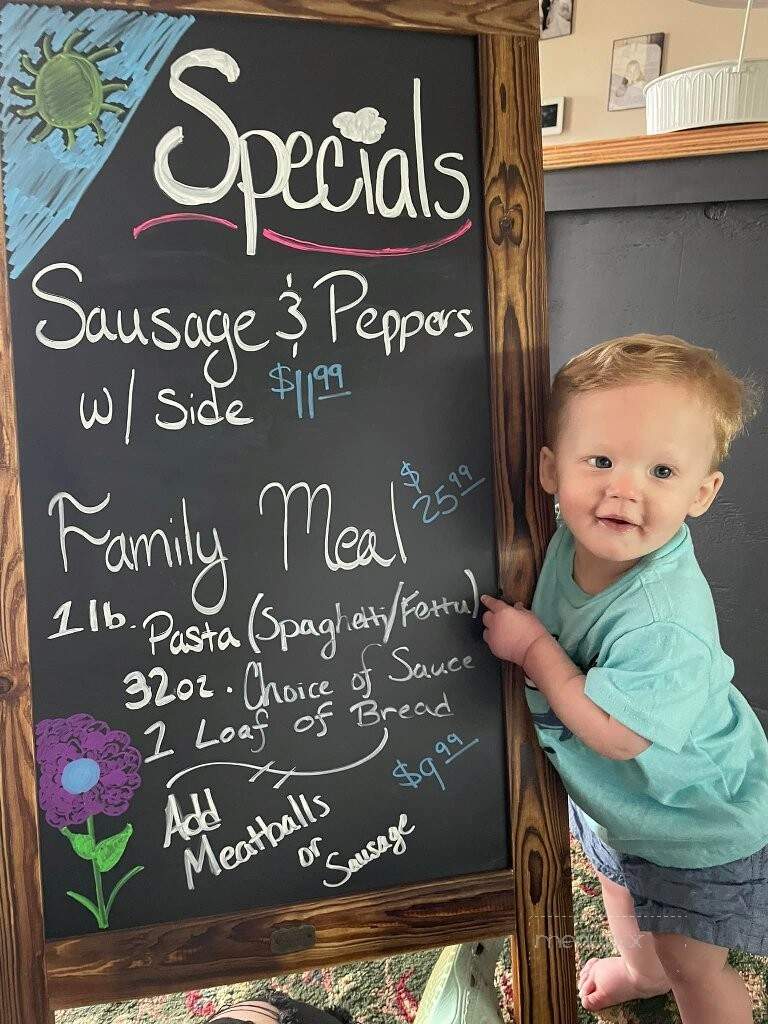 Specials
Sausage & Peppers
w/ Side $11.99
Family Meal $25.99
1 lb. Pasta (Spaghetti/Fettu)
32oz. Choice of Sauce
1 Loaf of Bread
$9.99
Add
Meatballs
or Sausage